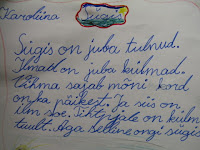 Karoliina
Sügis
Sügis on juba tulnud.
Ilmad on juba külmad.
Vihma sajab mõni kord
on ka päikest. Ja siis on
ilm soe. on külm
Aga selline ongi sügis